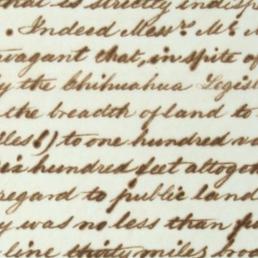 that is strictly indisp
. Indeed Messrs. Mc. M
vagant that, in spite of
y the Chihuahua Legis
the breadth of land to
les!) to one hundred v
six hundred feet altoge
regard to public land
y was no less than fu
line thirty miles broa